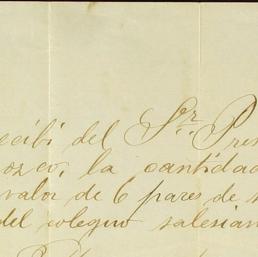 ecibí del Sr. Pres
ozco, la cantidad
valor de 6 pares de
del colegio salesian